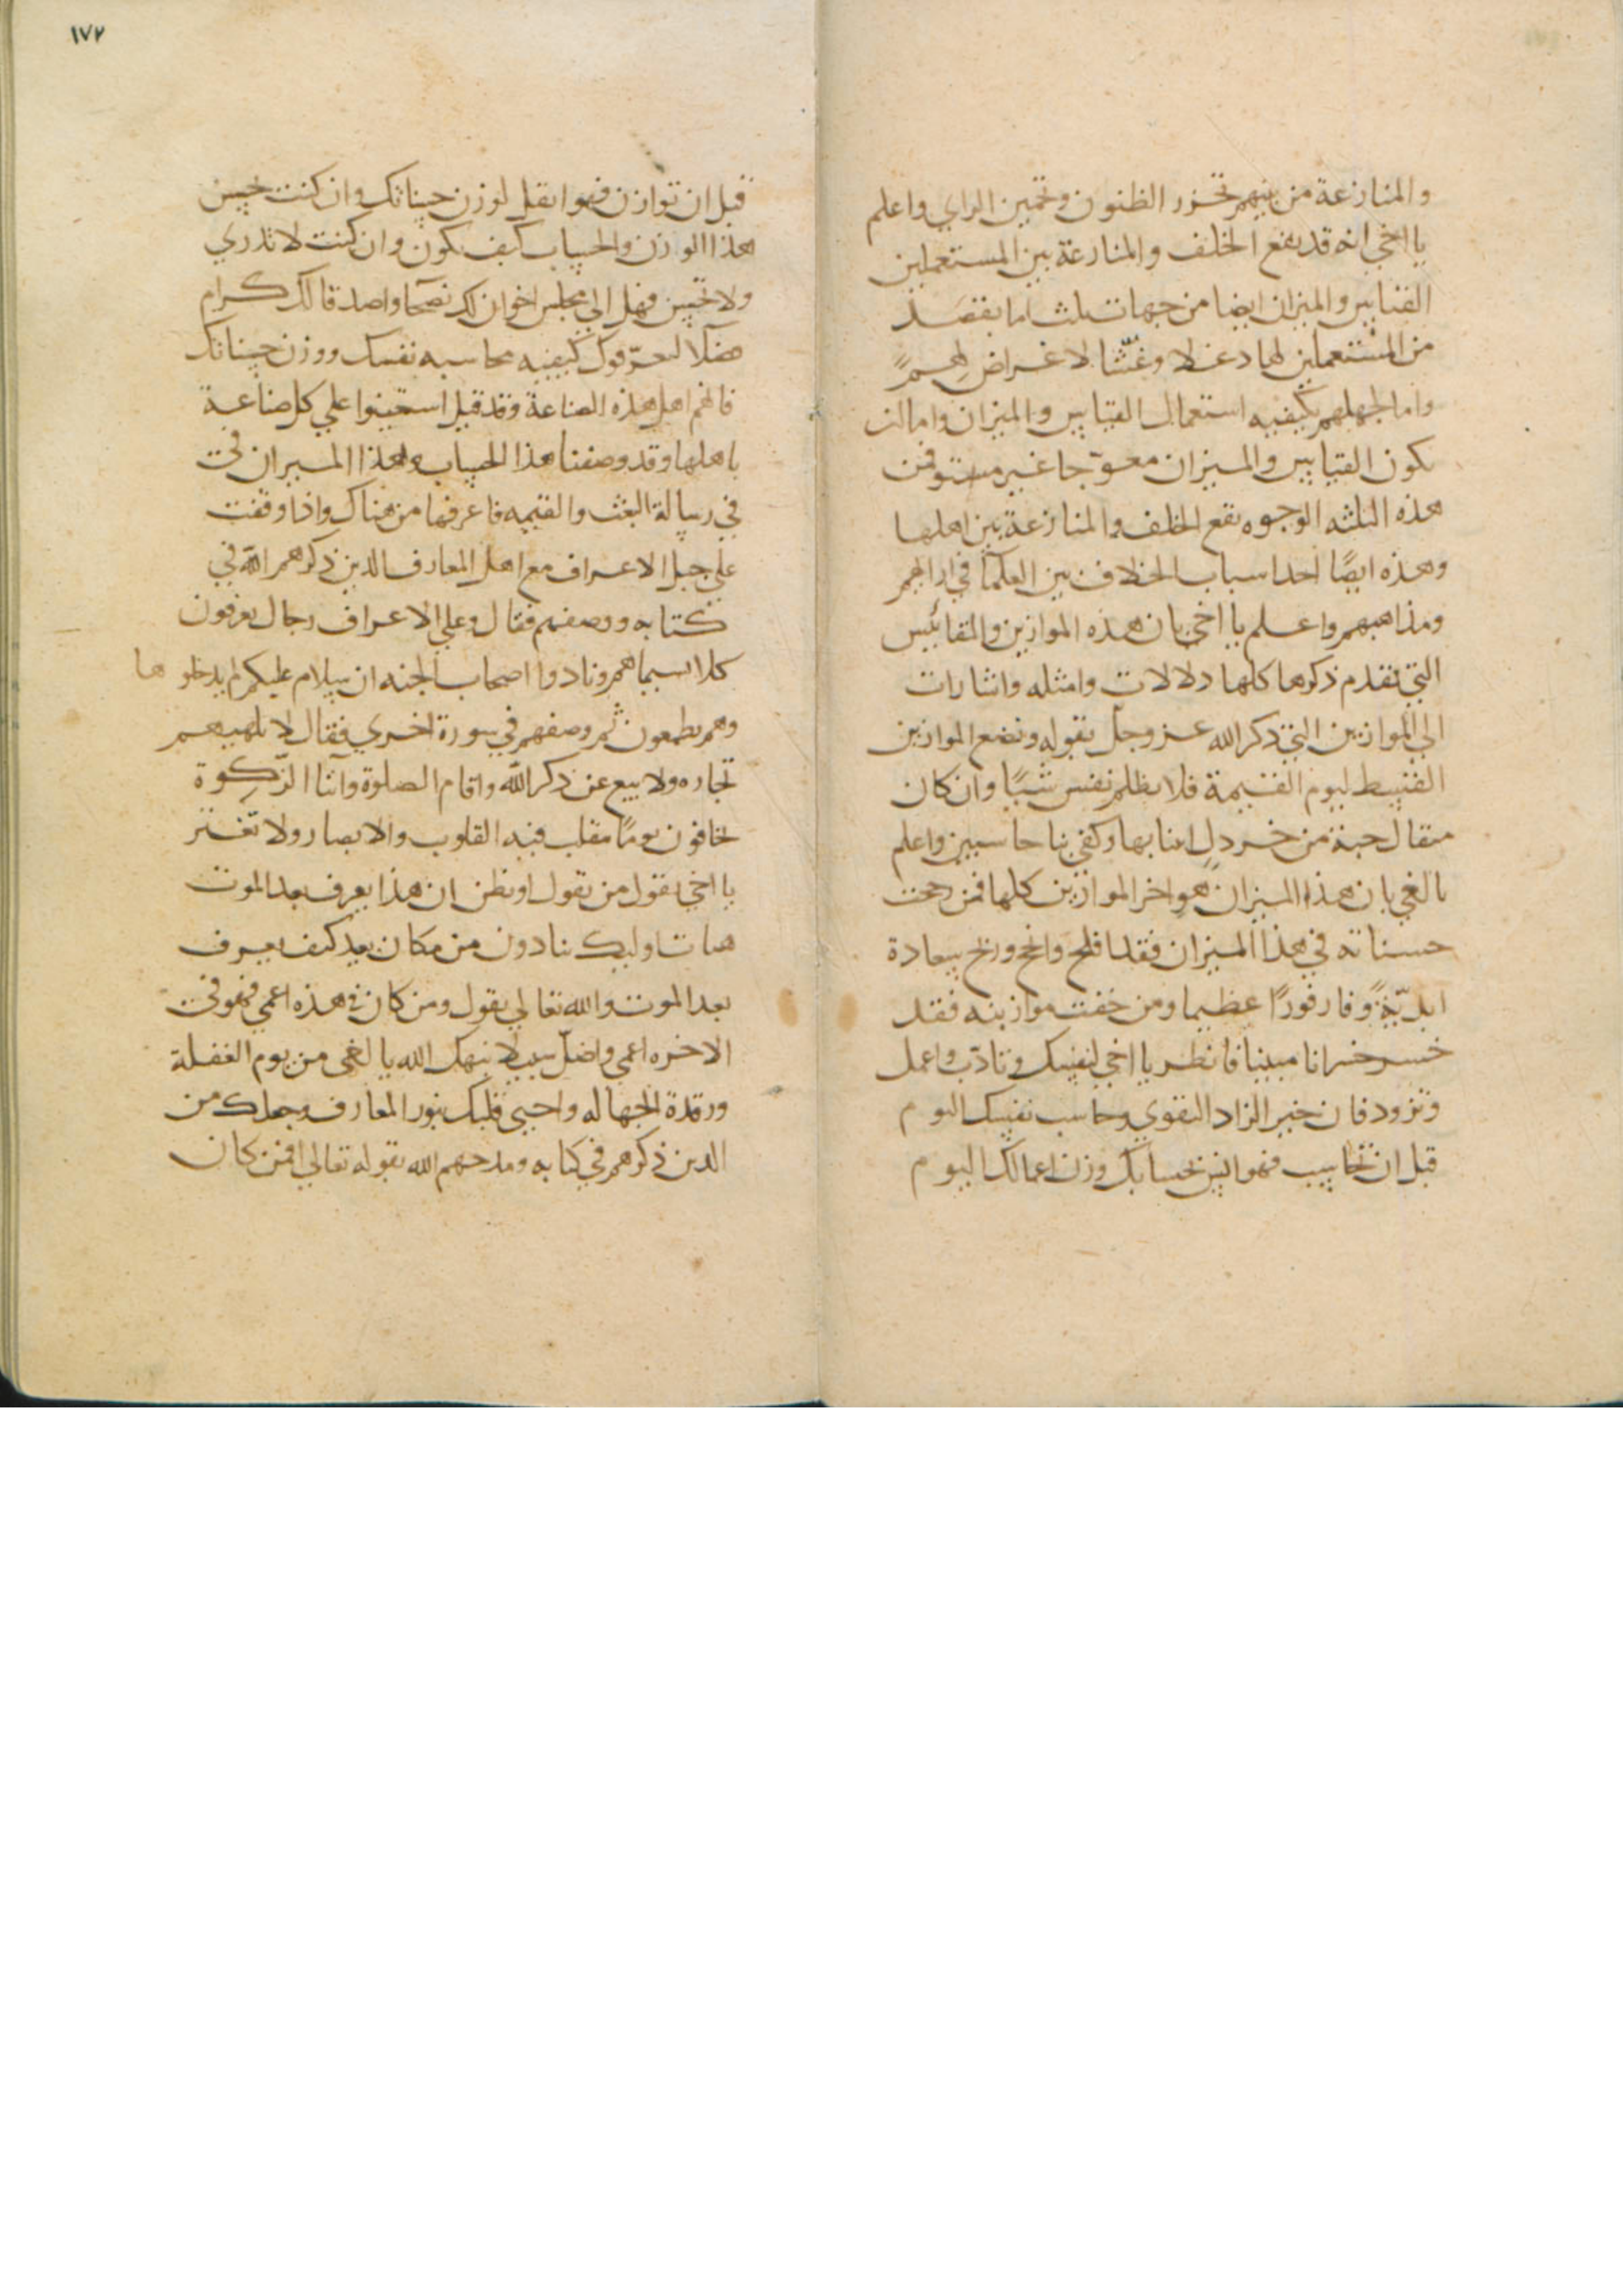 والمنازعة من بينهم تحزر الظنون وتخمين الراي واعلم
يا اخي انه قد يقع الخلف والمنازعة بين المستعملين
القياس والميزان ايضا من جهات ثلث اما بقصد
من المستعملين لها دغلا وغشا لا غراض لهم
واما لجهلهم بكيفيه استعمال القياس والميزان واما ان
يكون القياس والميزان معوجا غير مستو فمن
هذه الثلثه الوجوه يقع الخلف والمنازعة بين اهلها
وهذه ايضا احد اسباب الخلاف بين العلما في ارايهم
ومذاهبهم واعلم يا اخي بان هذه الموازين والمقائيس
التي تقدم ذكرها كلها دلالات وامثله واشارات
الي الموازين التي ذكر الله عز وجل بقوله ونضع الموازين
القسط ليوم القيمة فلا يظلم نفس شيا وان كان
مثقال حبة من خردل اتينا بها وكفي بنا حاسبين واعلم
يا اخي بان هذا الميزان هو اخر الموازين كلها فمن رجحت
حسناته في هذا الميزان فقد افلح وانجح وربح سعادة
ابدية وفاز فوزا عظيما ومن خفت موازينه فقد
خسر خسرانا مبينا فانظر يا اخي لنفسك وتادب واعمل
وتزود فان خير الزاد التقوي وحاسب نفسك اليوم
قبل ان تحاسب فهو ايسر لحسابك وزن اعمالك اليوم
١٧٢
قبل ان توازن فهو اثقل لوزن حسناتك وان كنت تحسن
هذا الوزن والحساب كيف يكون وان كنت لا تدري
ولا تحسن فهلم الي مجلس اخوان لك نصحا واصدقا لك كرام
فضلا ليعرفوك كيفيه محاسبه نفسك ووزن حسناتك
فانهم اهل هذه الصناعة وقد قيل استعينوا علي كل صناعة
باهلها وقد وصفنا هذا الحساب وهذا الميزان في
في رسالة البعث والقيمه فاعرفها من هناك واذا وقفت
علي جبل الاعراف مع اهل المعارف الذين ذكرهم الله في
كتابه ووصفهم فقال وعلي الاعراف رجال يعرفون
كلا بسيماهم ونادوا اصحاب الجنه ان سلام عليكم لم يدخلو ها
وهم يطمعون ثم وصفهم في سورة اخري فقال لا تلهيهم
تجاره ولا بيع عن ذكر الله واقام الصلوة وآيتا الزكوة
يخافون يوما تتقلب فيه القلوب والابصار ولا تغتر
يا اخي بقول من يقول او يظن ان هذا يعرف بعد الموت
هيهات اوليك ينادون من مكان بعيد كيف يعرف
بعد الموت والله تعالي يقول ومن كان في هذه اعمي فهو في
الاخره اعمي واضل سبيلا نبهك الله يا اخي من نوم الغفلة
ورقدة الجهاله واحيي قلبك بنور المعارف وجعلك من
الدين ذكرهم في كتابه ومدحهم الله بقوله تعالي افمن كان